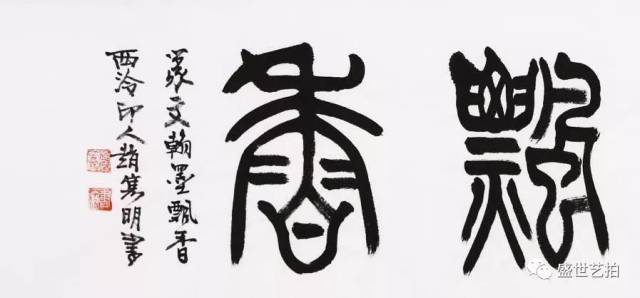 飄香
篆文翰墨飄香
西泠印人趙隽明書
盛世艺拍